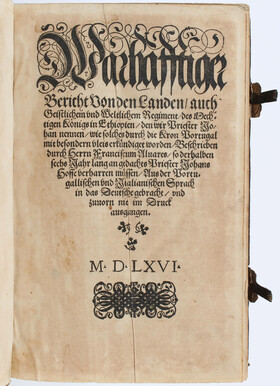 Warhafftiger
Bericht Von den Landen / auch
Geistlichem vnd Weltlichem Regiment / des Mech-
tigen Königs in Ethiopien / den wir Priester Jo-
han nennen / wie solches durch die Kron Portugal
mit besondern vleis erkündiget worden / Beschrieben
durch Herrn Franciscum Aluares / so derhalben
sechs Jahr lang an gedachts Priester Johans
Hoffe verharren müssen / Aus der Portu-
gallischen vnd Italianischen Sprach
in das Deutsche gebracht / vnd
zuuorn nie im Druck
ausgangen.
M. D. LXVI.